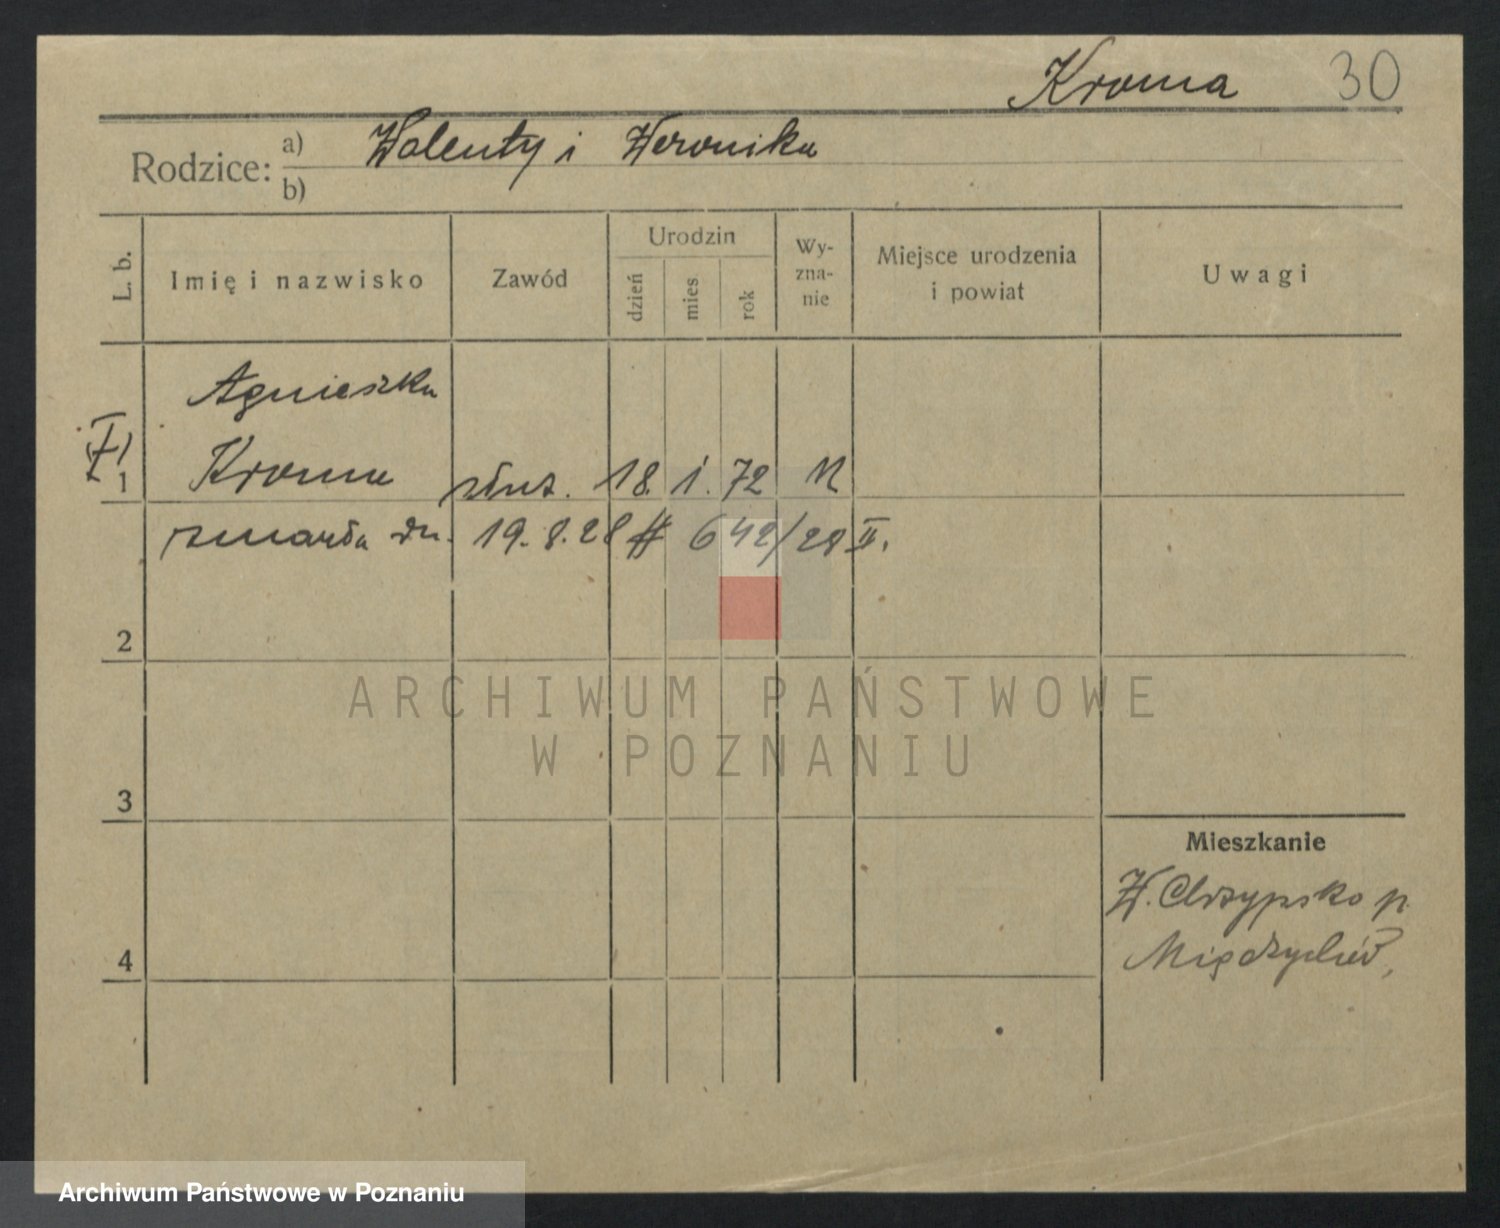 Kroma 30
Rodzice: a) Walenty i Weronika
b)
L. b. Imię i nazwisko Zawód Urodzin dzień mies rok Wy-zna-nie Miejsce urodzenia i powiat Uwagi
Agnieszka
1 Kroma służ. 18. 1. 72
zmarła dn. 19.8.28 # 642/28 II.
2
ARCHIWUM PAŃSTWOWE
W POZNANIU
3
Mieszkanie
W. Chrzypsko p.
4 Międzychód,
Archiwum Państwowe w Poznaniu